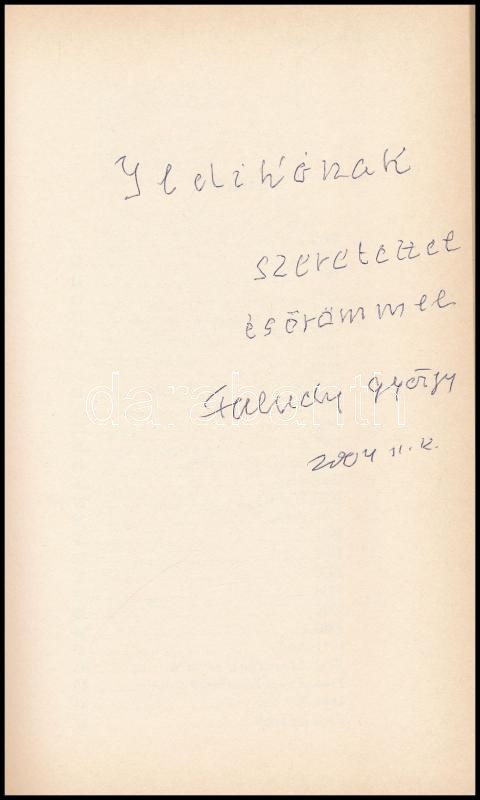 Ildikónak
szeretettel
és örömmel
Faludy György
darabanth
2004 II. k.